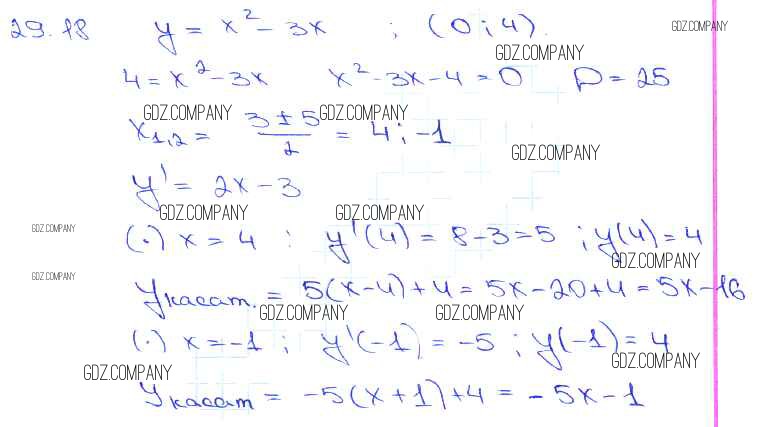 29.18 y = x² - 3x ; (0 ; 4). GDZ.COMPANY
GDZ.COMPANY
4 = x² - 3x x² - 3x - 4 = 0 D = 25
GDZ.COMPANY GDZ.COMPANY
x₁,₂ = (3 ± 5)/2 = 4 ; -1
GDZ.COMPANY
y' = 2x - 3
GDZ.COMPANY GDZ.COMPANY
GDZ.COMPANY (·) x = 4 : y'(4) = 8 - 3 = 5 ; y(4) = 4
GDZ.COMPANY
GDZ.COMPANY
Yкасат. = 5(x - 4) + 4 = 5x - 20 + 4 = 5x - 16
GDZ.COMPANY GDZ.COMPANY
(·) x = -1 ; y'(-1) = -5 ; y(-1) = 4
GDZ.COMPANY
GDZ.COMPANY
Yкасат = -5(x + 1) + 4 = -5x - 1